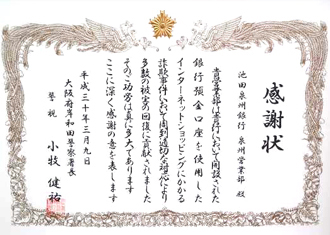 感謝状
池田泉州銀行 泉州営業部 殿
貴営業部は貴行において開設された
銀行預金口座を使用した
インターネット・ショッピングにかかる
詐欺事件において周到適切な対応により
多数の被害の回復に貢献されました
そのご功労は真に多大であります
ここに深く感謝の意を表します
平成三十年三月九日
大阪府岸和田警察署長
警視 小牧 健祐